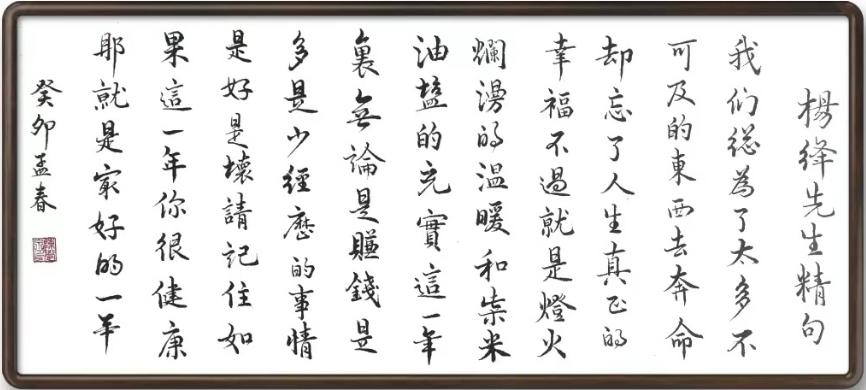 楊绛先生精句
我们總為了太多不
可及的東西去奔命
却忘了人生真正的
幸福不過就是燈火
爛漫的温暖和柴米
油鹽的充實這一年
裏無論是賺錢是
多是少經歷的事情
是好是壞請記住如
果這一年你很健康
那就是最好的一年
癸卯孟春